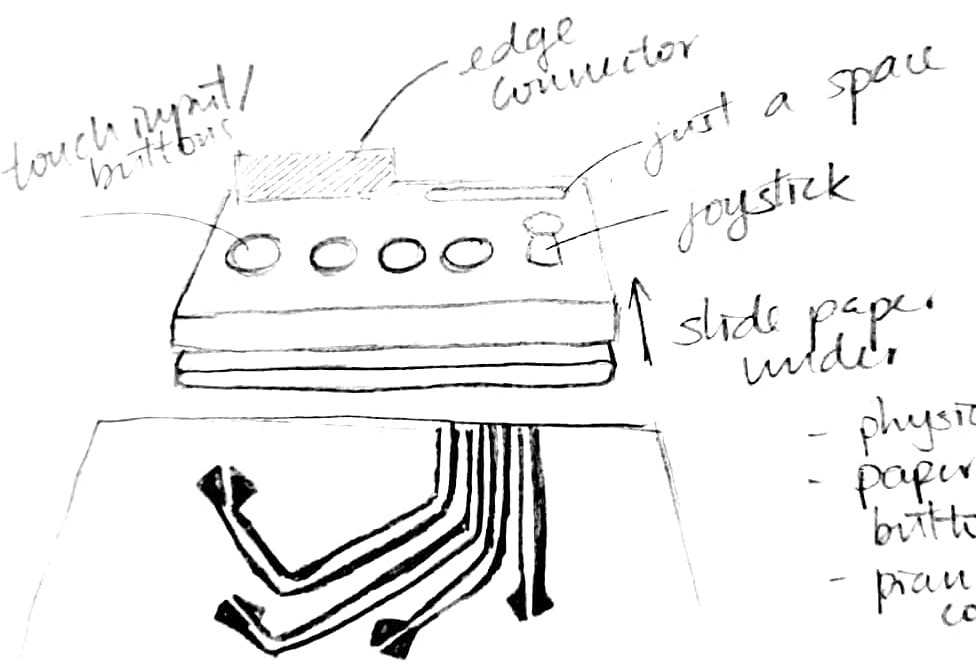 edge
connector
touch input/
buttons
just a space
joystick
slide paper
under
- physic
- paper
butto
- pian
co